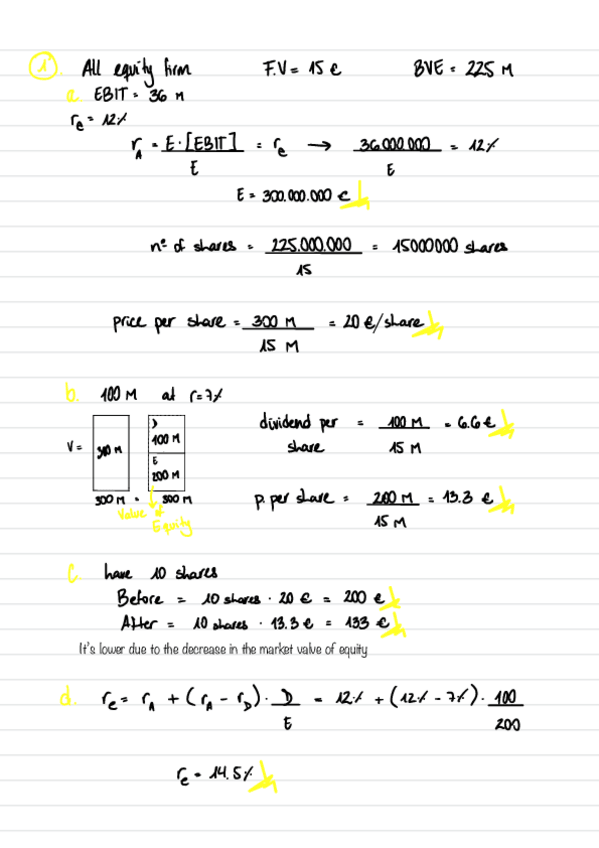 1. All equity firm F.V = 15 € BVE = 225 M
a. EBIT = 36 M
re = 12%
rA = E·[EBIT] / E = re → 36.000.000 / E = 12%
E = 300.000.000 €
nº of shares = 225.000.000 / 15 = 15000000 shares
price per share = 300 M / 15 M = 20 €/share
b. 100 M at r=7%
V = 300 M D 100 M E 200 M
300 M = 300 M
Value of Equity
dividend per share = 100 M / 15 M = 6.6 €
p. per share = 200 M / 15 M = 13.3 €
c. have 10 shares
Before = 10 shares · 20 € = 200 €
After = 10 shares · 13.3 € = 133 €
It's lower due to the decrease in the market value of equity
d. re = rA + (rA - rD) · D / E = 12% + (12% - 7%) · 100 / 200
re = 14.5%